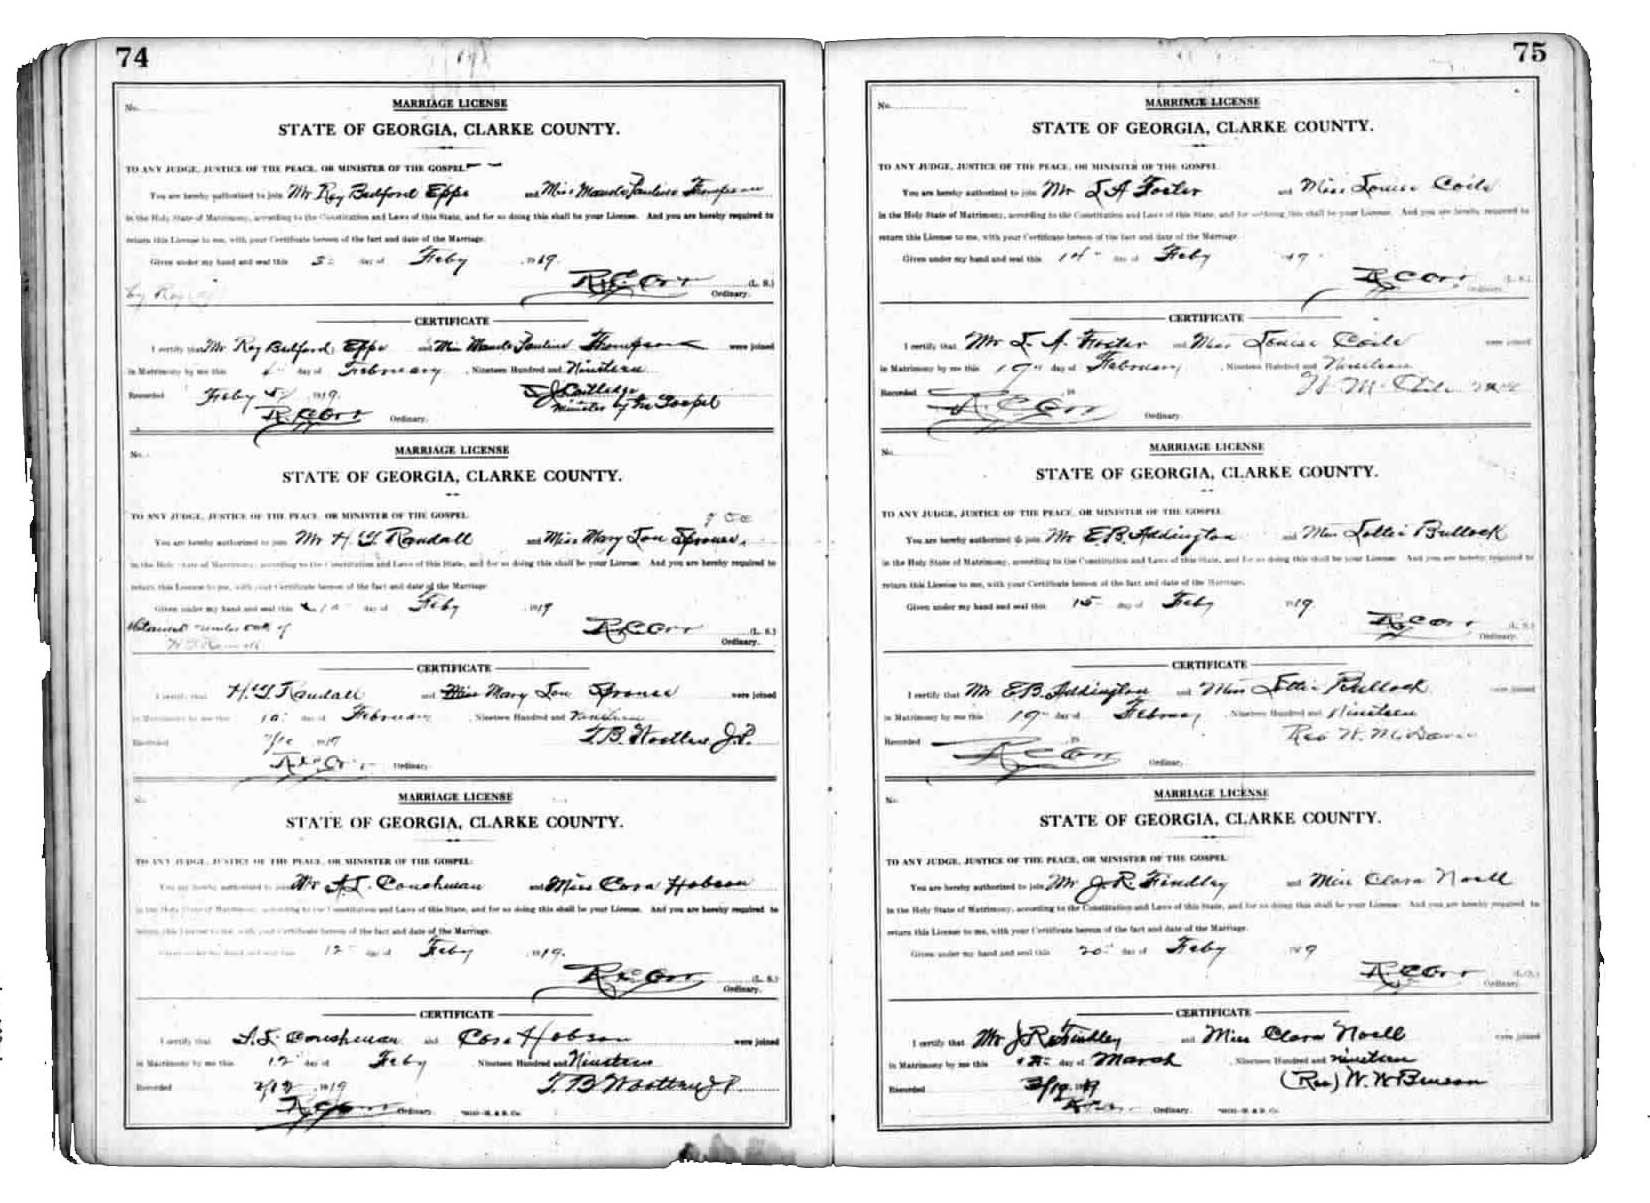 74
No.
MARRIAGE LICENSE
STATE OF GEORGIA, CLARKE COUNTY.
TO ANY JUDGE, JUSTICE OF THE PEACE, OR MINISTER OF THE GOSPEL
You are hereby authorized to join Mr Roy Bedford Epps and Miss Maude Pauline Thompson
in the Holy State of Matrimony, according to the Constitution and Laws of this State, and for so doing this shall be your License. And you are hereby required to
return this License to me, with your Certificate hereon of the fact and date of the Marriage.
Given under my hand and seal this day of Feby 1919.
R C Orr (L. S.)
Ordinary.
CERTIFICATE
I certify that Mr Roy Bedford Epps and Miss Maude Pauline Thompson were joined
in Matrimony by me this day of February, Nineteen Hundred and Nineteen
Recorded Feby 1919.
Minister of the Gospel
R C Orr Ordinary.
No.
MARRIAGE LICENSE
STATE OF GEORGIA, CLARKE COUNTY.
TO ANY JUDGE, JUSTICE OF THE PEACE, OR MINISTER OF THE GOSPEL
You are hereby authorized to join Mr H. T Randall and Miss Mary Lou Sprouse.
in the Holy State of Matrimony, according to the Constitution and Laws of this State, and for so doing this shall be your License. And you are hereby required to
return this License to me, with your Certificate hereon of the fact and date of the Marriage
Given under my hand and seal this 10 day of Feby 1919
R C Orr (L. S.)
Ordinary.
CERTIFICATE
I certify that H. T Randall and Miss Mary Lou Sprouse were joined
in Matrimony by me this 10 day of February, Nineteen Hundred and Nineteen
Recorded 1919 T. B. Wootten J.P.
R C Orr Ordinary.
No.
MARRIAGE LICENSE
STATE OF GEORGIA, CLARKE COUNTY.
TO ANY JUDGE, JUSTICE OF THE PEACE, OR MINISTER OF THE GOSPEL:
You are hereby authorized to join Mr A. L. Couchman and Miss Cora Hobson
in the Holy State of Matrimony, according to the Constitution and Laws of this State, and for so doing this shall be your License. And you are hereby required to
return this License to me, with your Certificate hereon of the fact and date of the Marriage.
Given under my hand and seal this 12 day of Feby 1919.
R C Orr (L. S.)
Ordinary.
CERTIFICATE
I certify that A. L. Couchman and Cora Hobson were joined
in Matrimony by me this 12 day of Feby Nineteen Hundred and Nineteen
Recorded 2/12 1919 T. B Wootten J P.
Ordinary.
75
No.
MARRIAGE LICENSE
STATE OF GEORGIA, CLARKE COUNTY.
TO ANY JUDGE, JUSTICE OF THE PEACE, OR MINISTER OF THE GOSPEL
You are hereby authorized to join Mr L A Foster and Miss Louise Coile
in the Holy State of Matrimony, according to the Constitution and Laws of this State, and for so doing this shall be your License. And you are hereby required to
return this License to me, with your Certificate hereon of the fact and date of the Marriage.
Given under my hand and seal this 14 day of Feby 19
R C Orr (L. S.)
Ordinary.
CERTIFICATE
I certify that Mr L. A. Foster and Miss Louise Coile were joined
in Matrimony by me this 19 day of February, Nineteen Hundred and Nineteen
Recorded
R C Orr Ordinary.
No.
MARRIAGE LICENSE
STATE OF GEORGIA, CLARKE COUNTY.
TO ANY JUDGE, JUSTICE OF THE PEACE, OR MINISTER OF THE GOSPEL
You are hereby authorized to join Mr E. B. Addington and Miss Lottie Bullock
in the Holy State of Matrimony, according to the Constitution and Laws of this State, and for so doing this shall be your License. And you are hereby required to
return this License to me, with your Certificate hereon of the fact and date of the Marriage.
Given under my hand and seal this 15 day of Feby 1919.
R C Orr (L. S.)
Ordinary.
CERTIFICATE
I certify that Mr E B. Addington and Miss Lottie Bullock were joined
in Matrimony by me this 19 day of February, Nineteen Hundred and Nineteen
Recorded
R C Orr Ordinary.
No.
MARRIAGE LICENSE
STATE OF GEORGIA, CLARKE COUNTY.
TO ANY JUDGE, JUSTICE OF THE PEACE, OR MINISTER OF THE GOSPEL:
You are hereby authorized to join Mr J. R. Findley and Miss Clara Noell
in the Holy State of Matrimony, according to the Constitution and Laws of this State, and for so doing this shall be your License. And you are hereby required to
return this License to me, with your Certificate hereon of the fact and date of the Marriage.
Given under my hand and seal this 20 day of Feby 1919
R C Orr (L. S.)
Ordinary.
CERTIFICATE
I certify that Mr J. R. Findley and Miss Clara Noell were joined
in Matrimony by me this day of March, Nineteen Hundred and nineteen
Recorded (Rev) W. W Benson
Ordinary.